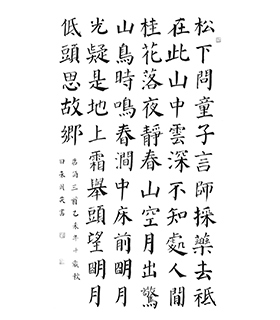 松下問童子言師採藥去祗
在此山中雲深不知處人間
桂花落夜靜春山空月出驚
山鳥時鳴春澗中床前明月
光疑是地上霜舉頭望明月
低頭思故鄉
唐詩三首乙未年